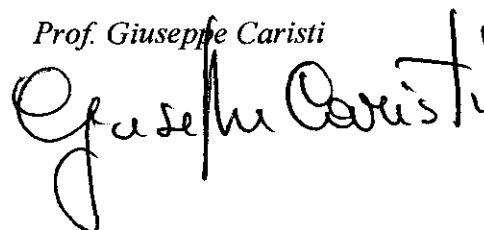 Prof. Giuseppe Caristi
Giuseppe Caristi